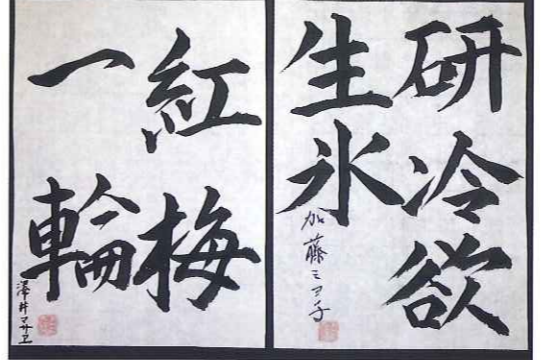 研冷欲
生氷
加藤ミヨ子
紅梅
一輪
澤井マサヱ